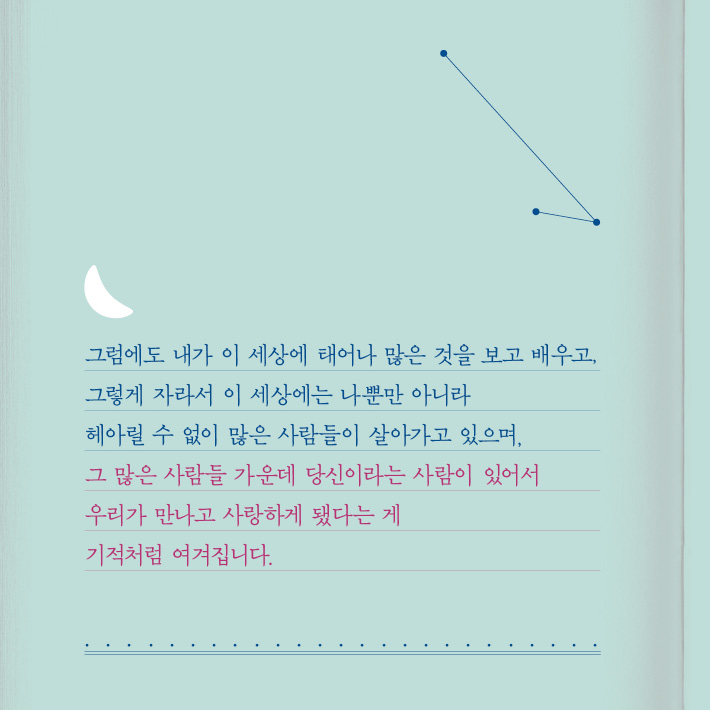 그럼에도 내가 이 세상에 태어나 많은 것을 보고 배우고,
그렇게 자라서 이 세상에는 나뿐만 아니라
헤아릴 수 없이 많은 사람들이 살아가고 있으며,
그 많은 사람들 가운데 당신이라는 사람이 있어서
우리가 만나고 사랑하게 됐다는 게
기적처럼 여겨집니다.